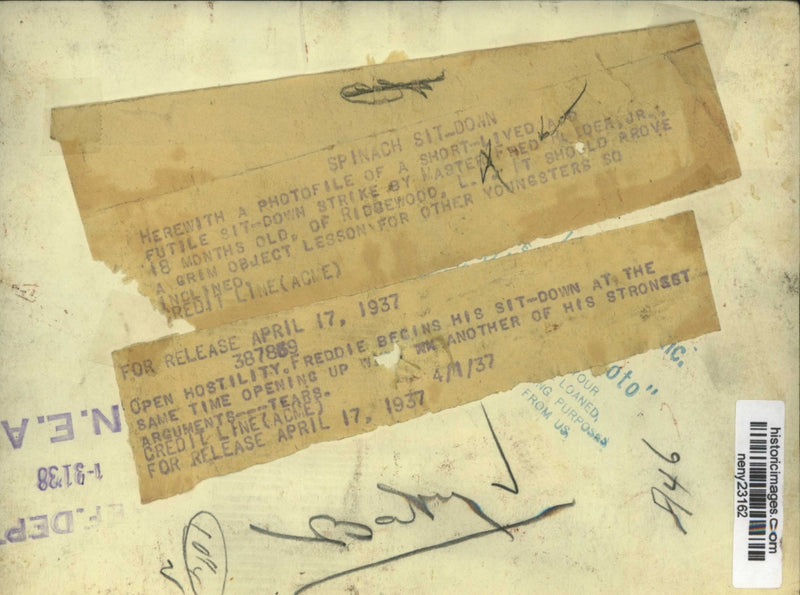 SPINACH SIT-DOWN
HEREWITH A PHOTOFILE OF A SHORT-LIVED AND
FUTILE SIT-DOWN STRIKE BY MASTER FRED JR.,
18 MONTHS OLD, OF RIDGEWOOD, L. IT SHOULD PROVE
A GRIM OBJECT LESSON FOR OTHER YOUNGSTERS SO
INCLINED.
REDIT LINE(ACME)
FOR RELEASE APRIL 17, 1937
387869
OPEN HOSTILITY. FREDDIE BEGINS HIS SIT-DOWN AT THE
SAME TIME OPENING UP ANOTHER OF HIS STRONGEST
ARGUMENTS---TEARS.
CREDIT LINE(ACME) 4/1/37
FOR RELEASE APRIL 17, 1937
N.E.A
1-31'38
F.DEP
NC.
OTO"
YOUR
LOANED,
NG PURPOSES
FROM US
Baby
946
historicimages.com
neny23162